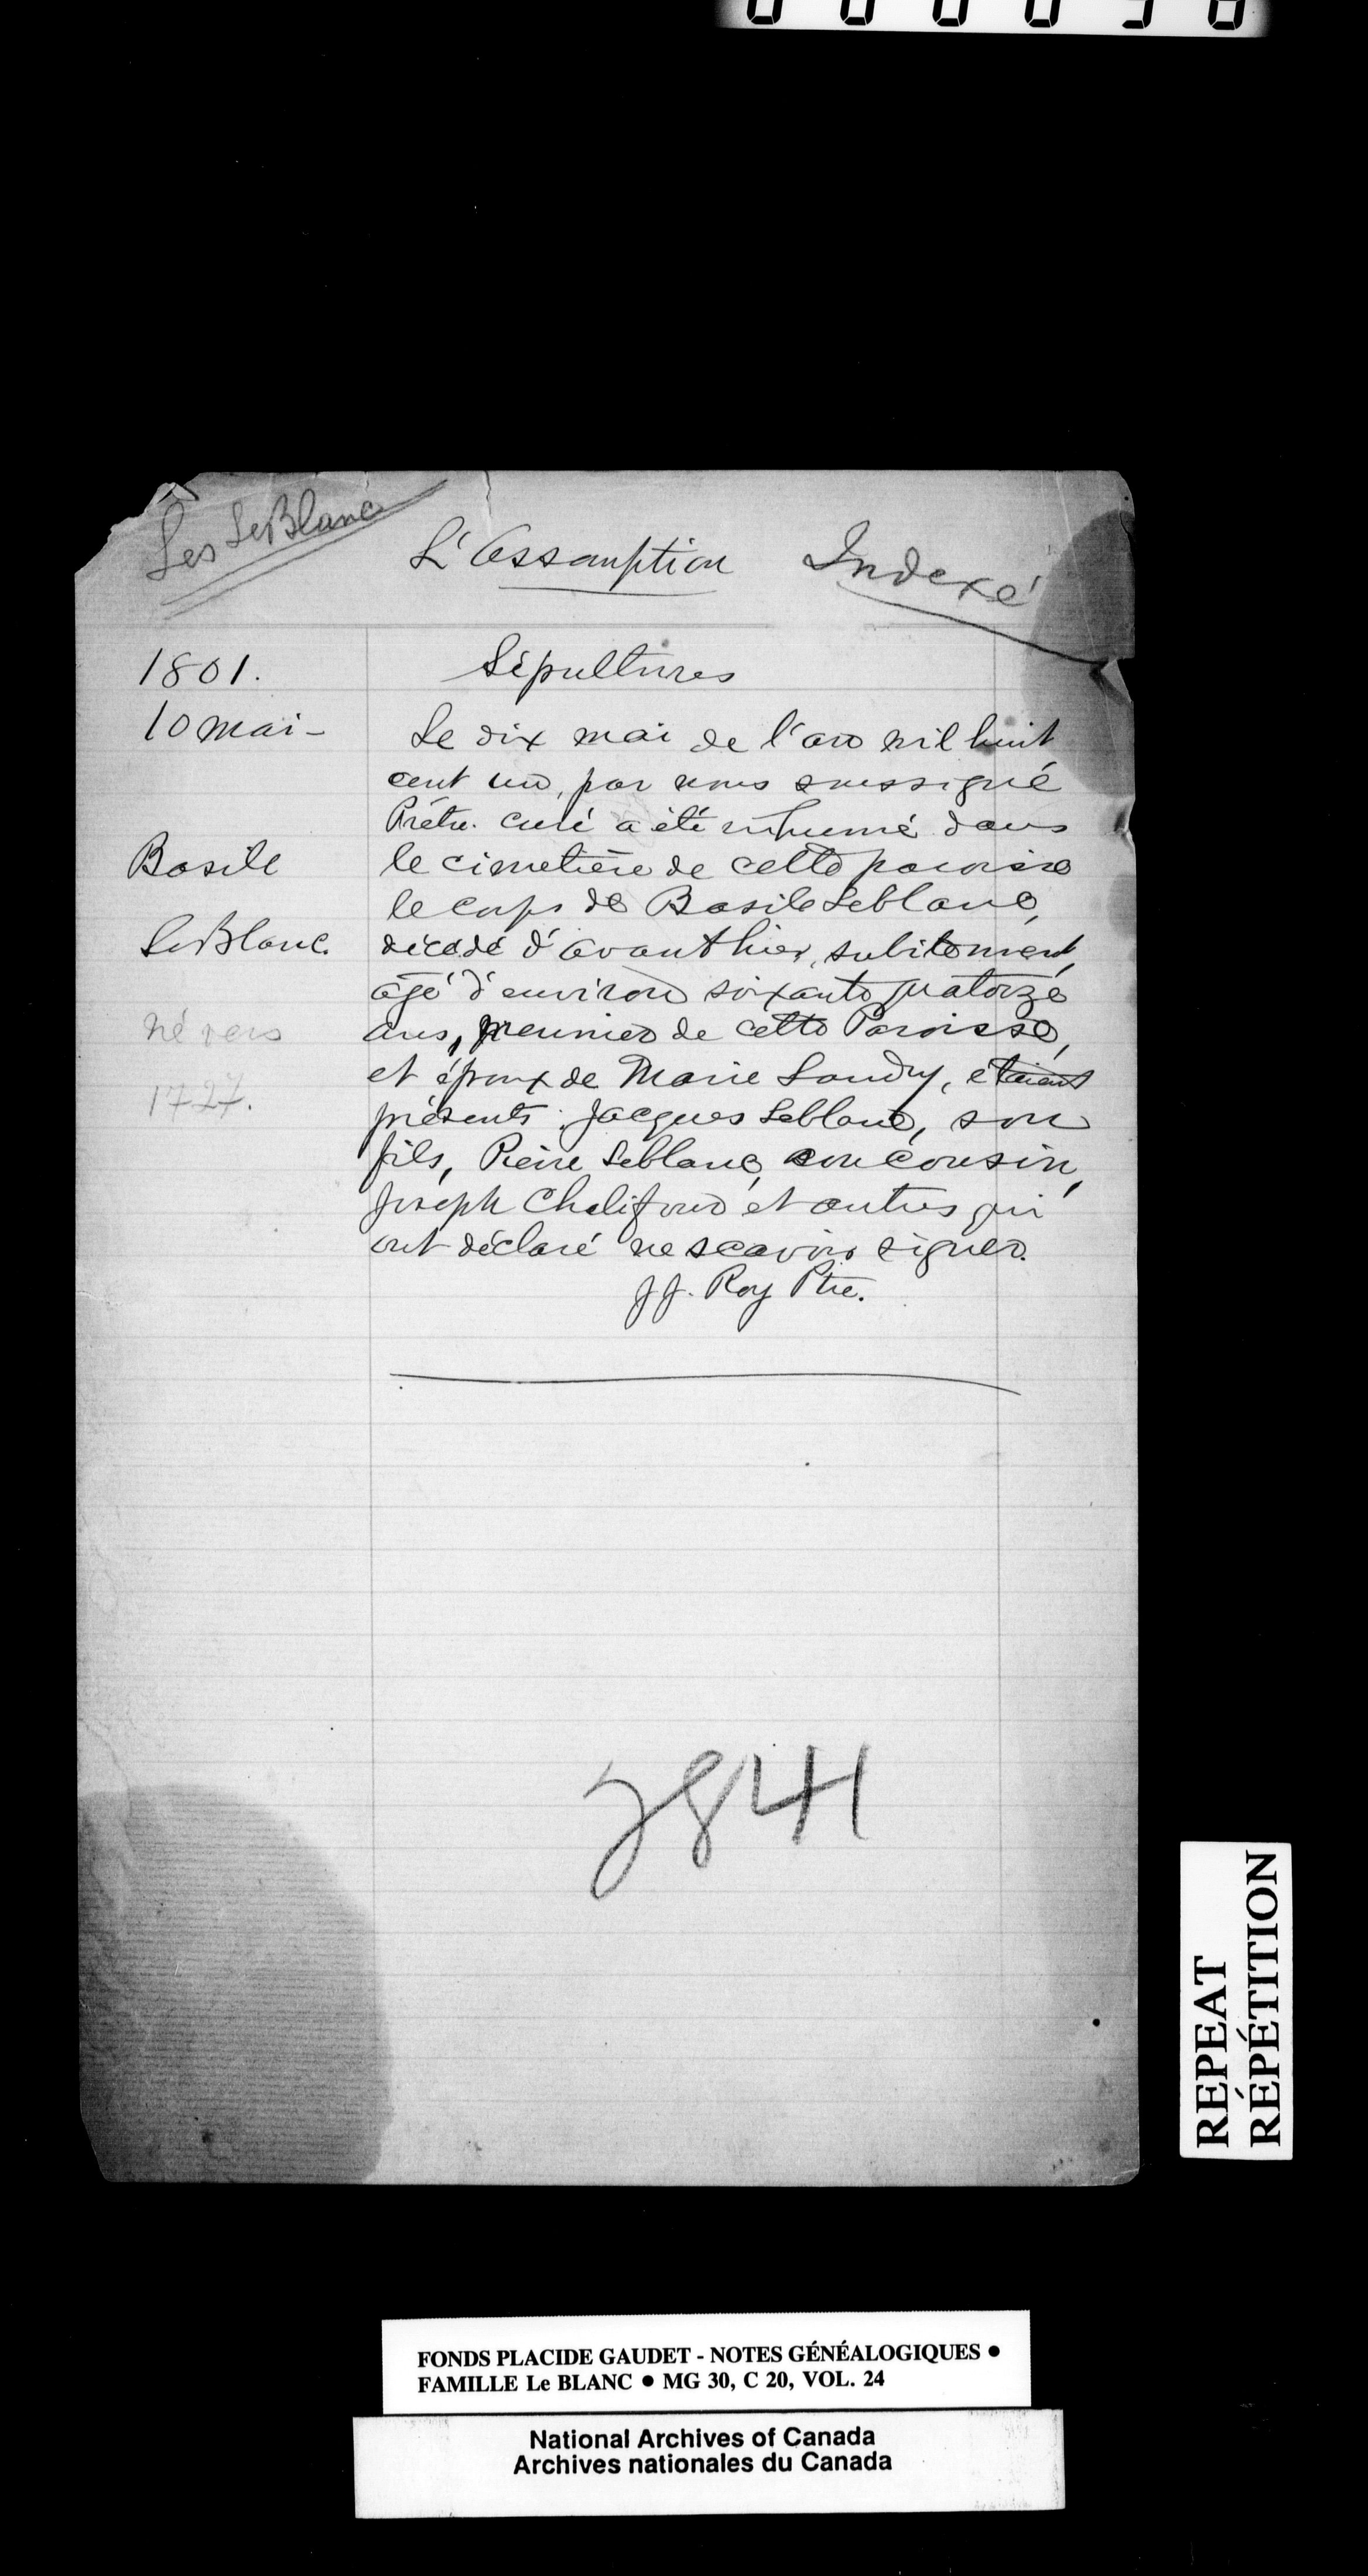 Les LeBlanc
L'Assomption
Indexé
1801.
Sépultures
10 mai -
Le dix mai de l'an mil huit
cent un, par nous soussigné
Prêtre curé a été inhumé dans
Basile
le cimetière de cette paroisse
le corps de Basile Leblanc,
LeBlanc.
décédé d'avant hier, subitement,
âgé d'environ soixante quatorze
né vers
ans, meunier de cette Paroisse,
et époux de Marie Landry, étaient
1727.
présents Jacques Leblanc, son
fils, Pierre Leblanc, son cousin,
Joseph Chalifoux et autres qui
ont déclaré ne scavoir signer.
J J. Roy Ptre.
2841
REPEAT
RÉPÉTITION
FONDS PLACIDE GAUDET - NOTES GÉNÉALOGIQUES ●
FAMILLE Le BLANC ● MG 30, C 20, VOL. 24
National Archives of Canada
Archives nationales du Canada